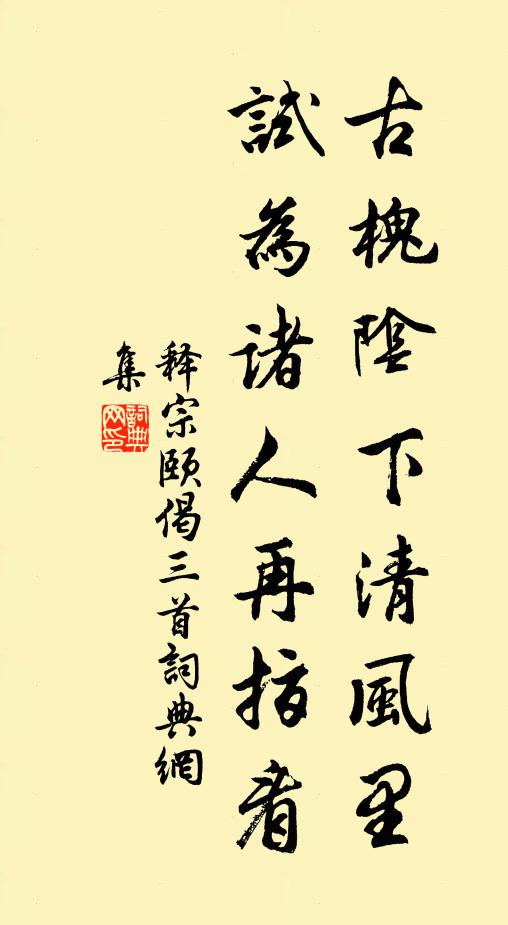 古槐陰下清風里
試為諸人再指看
釋宗頤偈三首詞典網
集
詞典网印